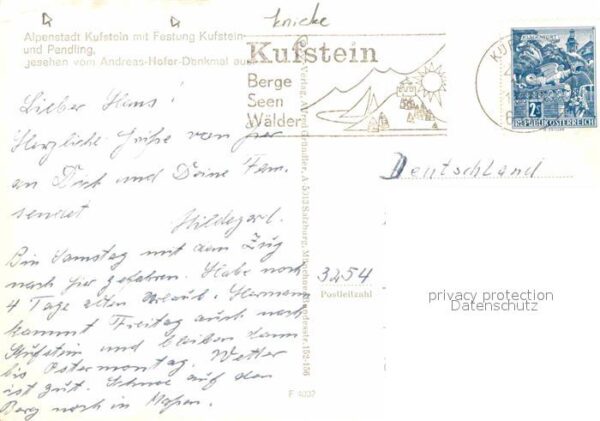 knicke
Alpenstadt Kufstein mit Festung Kufstein-
und Pendling,
gesehen vom Andreas-Hofer-Denkmal aus
Kufstein
Berge
Seen
Wälder
KUF
2S
REPUBLIK ÖSTERREICH
Lieber Hans!
Herzliche Grüße von hier
an Dich und Deine Fam.
sendet
Hildegard.
Bin Samstag mit dem Zug
nach hier gefahren. Habe noch
4 Tage alten Urlaub. Hermann
kommt Freitag auch nach
Kufstein und bleiben dann
bis Ostermontag. Wetter
ist gut. Schnee auf den
Berg noch in Massen.
Verlag Alfred Gründler, A 5013 Salzburg, Münchner Bundesstr. 152-156
Deutschland
3254
Postleitzahl
privacy protection
Datenschutz
F 4037